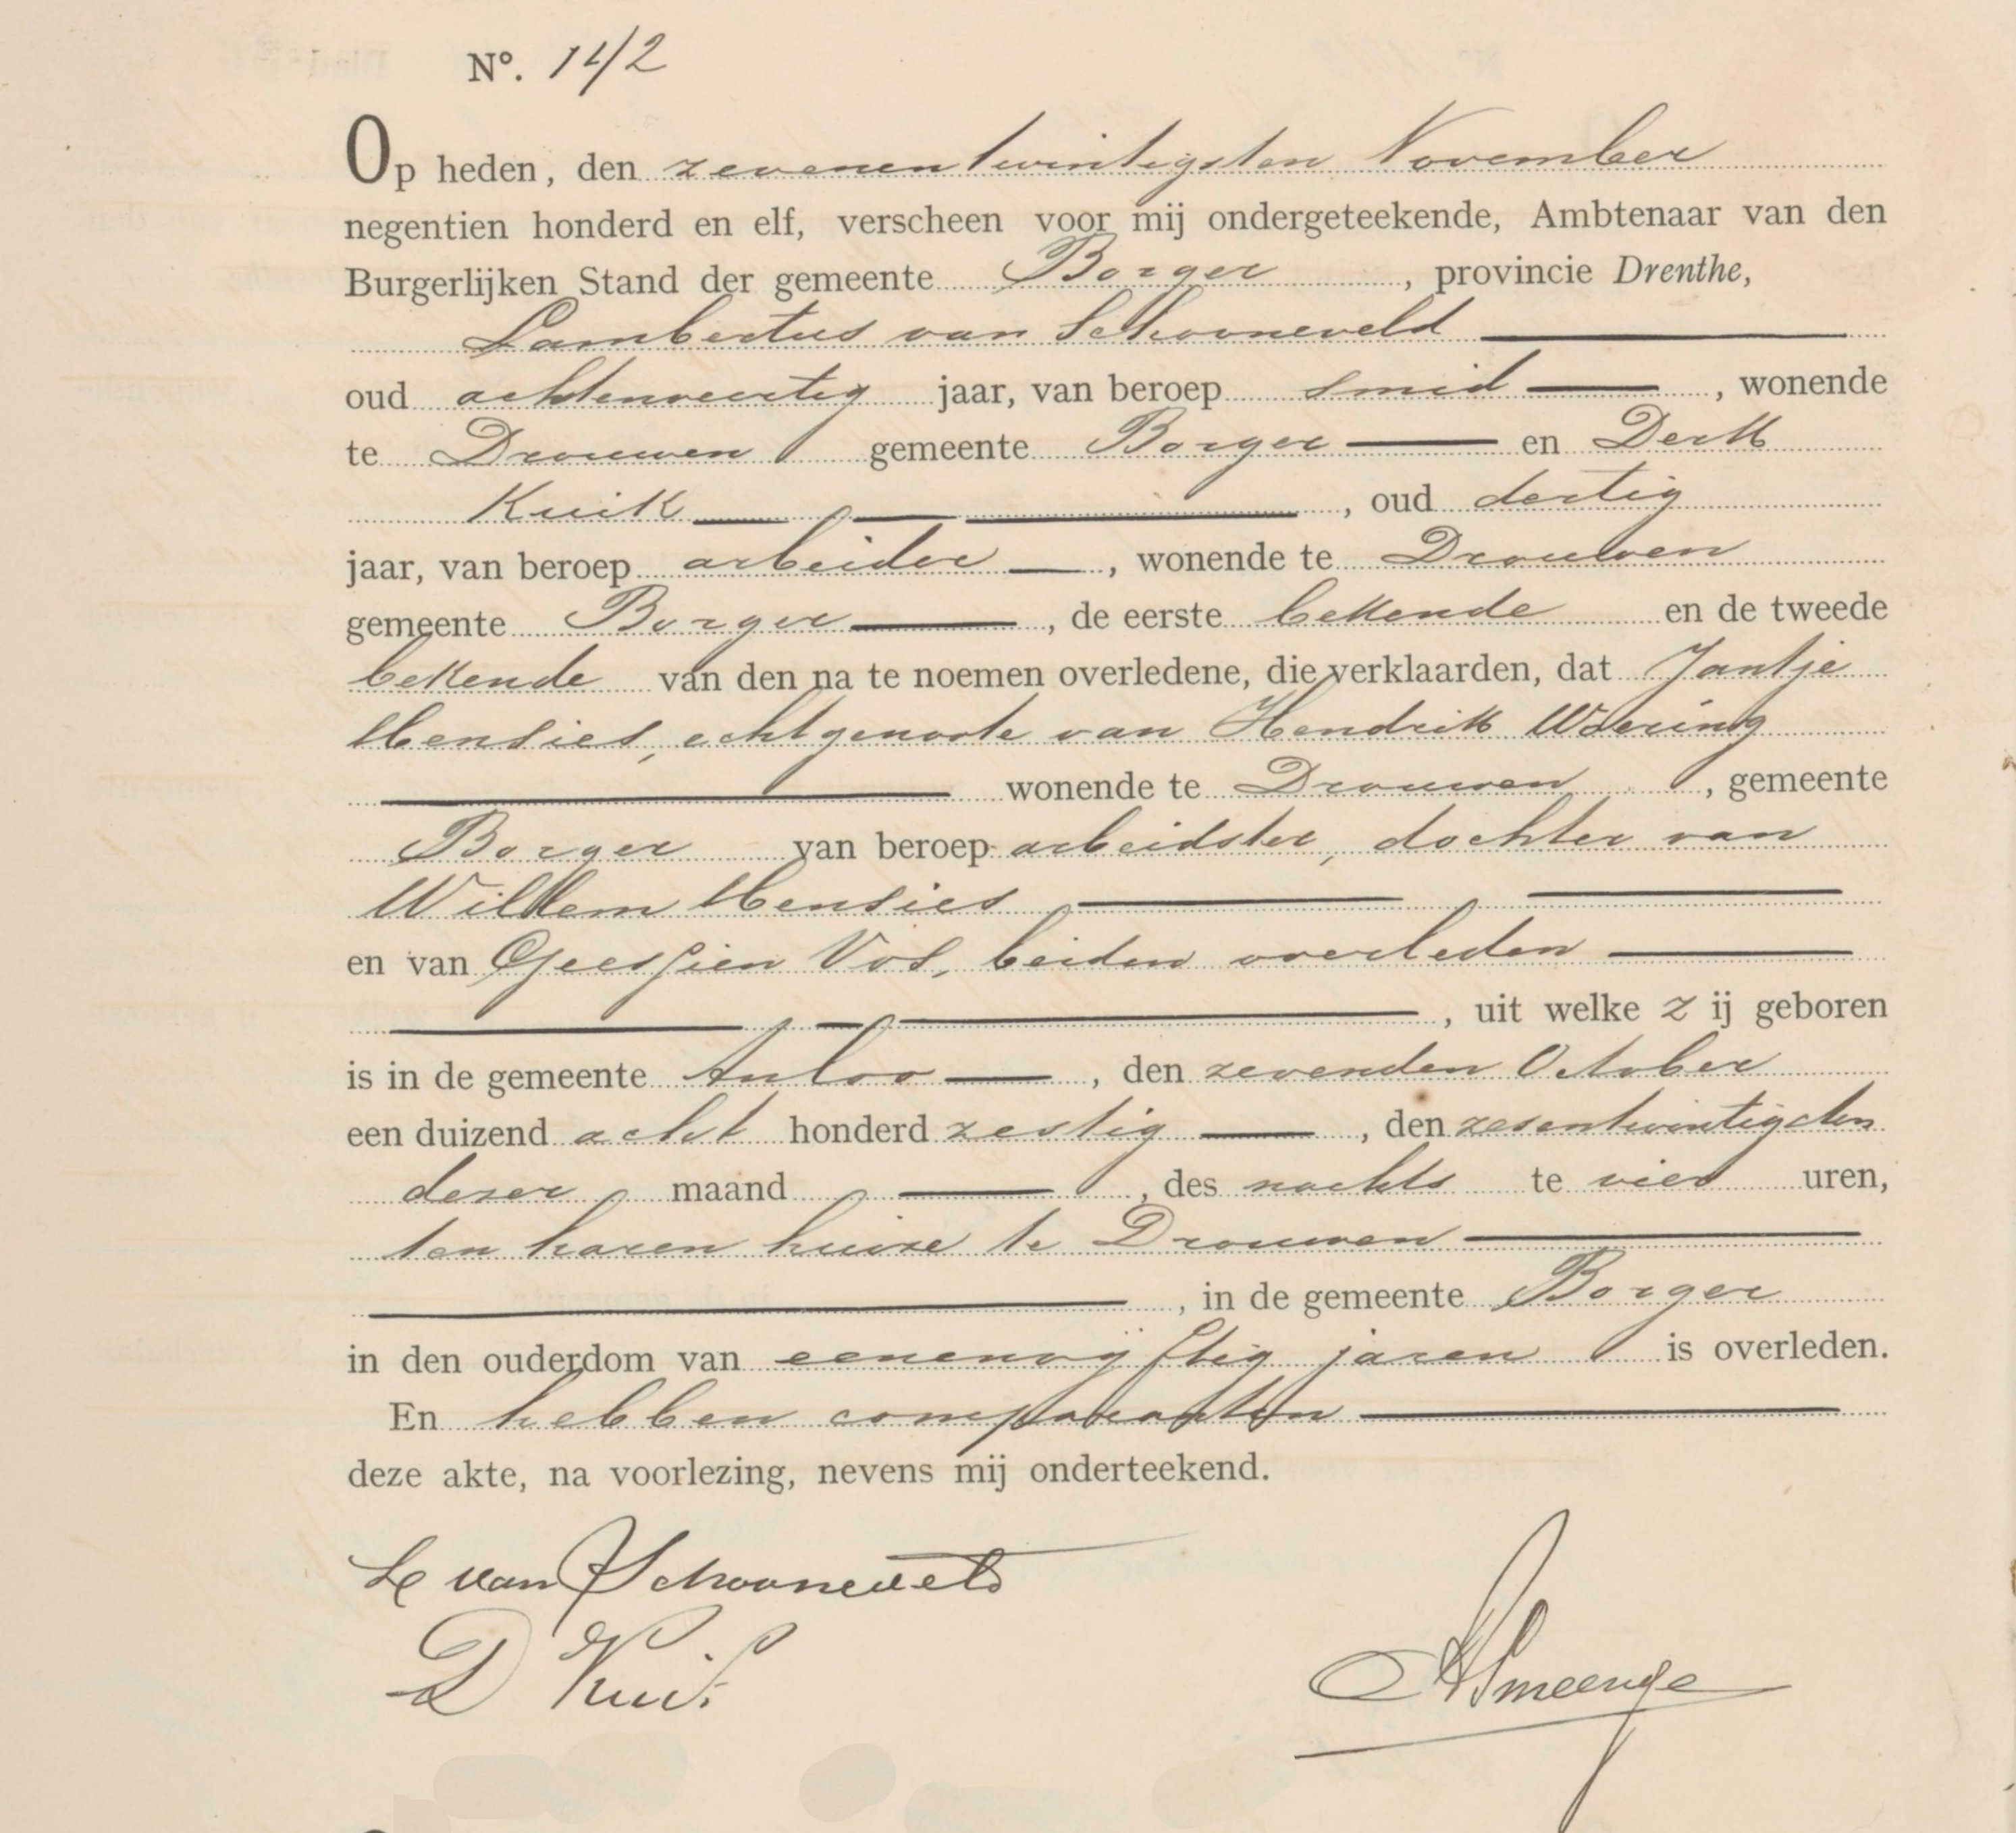 Nº. 142
Op heden, den zevenentwintigsten November
negentien honderd en elf, verscheen voor mij ondergeteekende, Ambtenaar van den
Burgerlijken Stand der gemeente Borger, provincie Drenthe,
Lambertus van Schooneveld
oud achtenveertig jaar, van beroep smid, wonende
te Drouwen gemeente Borger en Derk
Kuik, oud dertig
jaar, van beroep arbeider, wonende te Drouwen
gemeente Borger, de eerste bekende en de tweede
bekende van den na te noemen overledene, die verklaarden, dat Jantje
Hensies, echtgenoote van Hendrik Waering
wonende te Drouwen, gemeente
Borger van beroep arbeidster, dochter van
Willem Hensies
en van Geessien Vos, beiden overleden
, uit welke zij geboren
is in de gemeente Anloo, den zevenden October
een duizend acht honderd zestig, den zesentwintigsten
dezer maand, des nachts te vier uren,
ten haren huize te Drouwen
, in de gemeente Borger
in den ouderdom van eenenvijftig jaren is overleden.
En hebben comparanten
deze akte, na voorlezing, nevens mij onderteekend.
L van Schooneveld
D Kuik
Smeenge